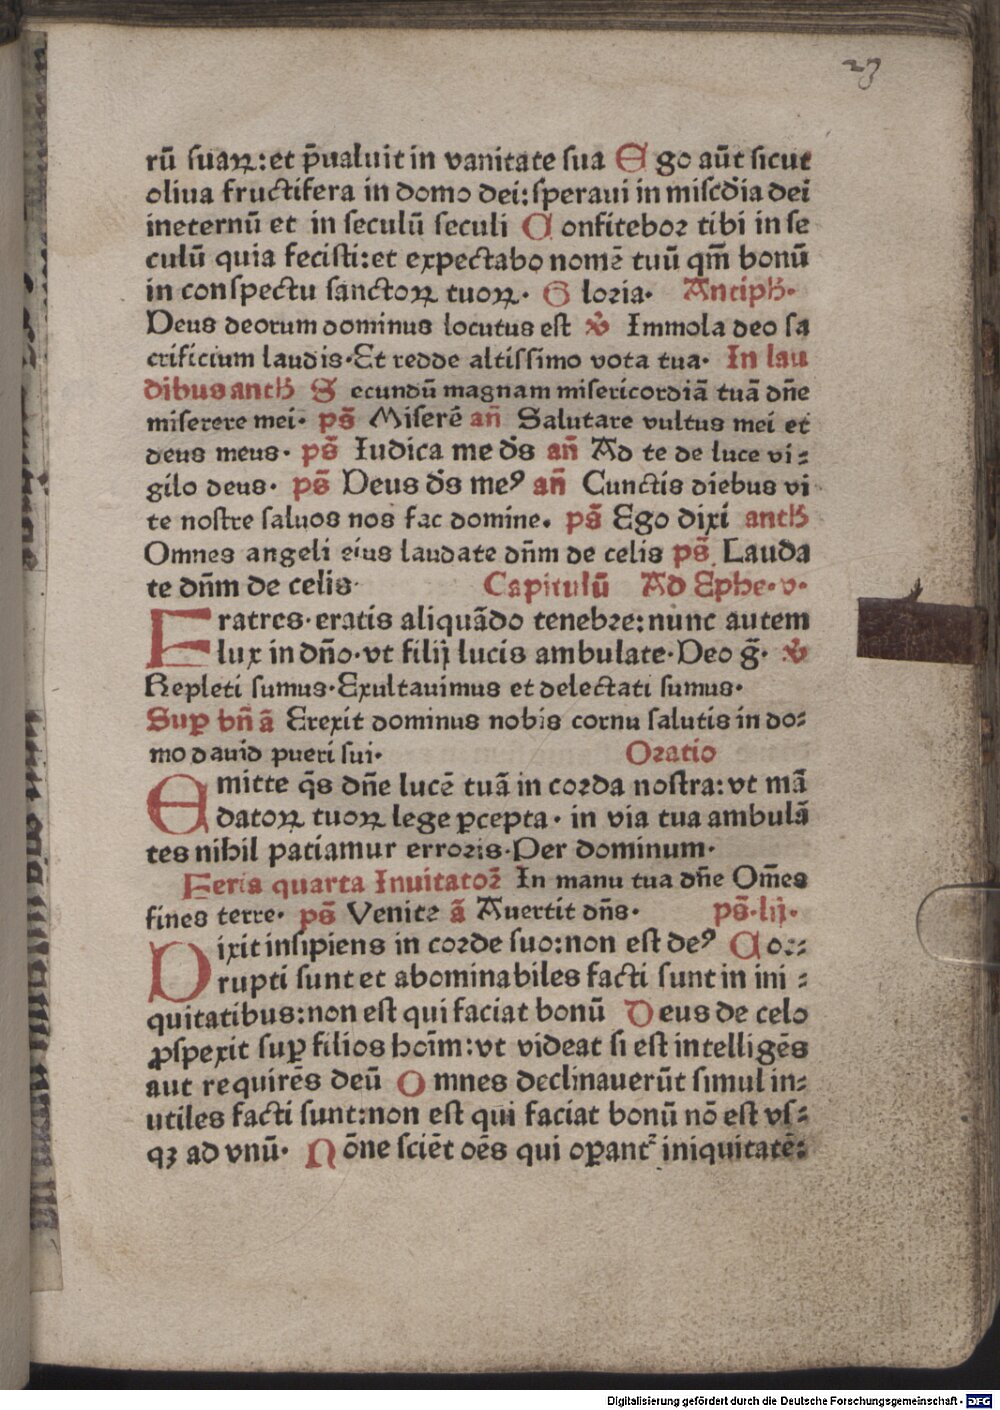 23
rū suaꝝ: et p̄ualuit in vanitate sua Ego aūt sicut
oliua fructifera in domo dei: speraui in miscd̄ia dei
ineternū et in seculū seculi Confitebor tibi in se
culū quia fecisti: et expectabo nomē tuū qm̄ bonū
in conspectu sanctoꝝ tuoꝝ. Gloria. Antiph.
Deus deorum dominus locutus est ℣ Immola deo sa
crificium laudis. Et redde altissimo vota tua. In lau
dibus anth Secundū magnam misericordiā tuā dn̄e
miserere mei. ps̄ Miserē an̄ Salutare vultus mei et
deus meus. ps̄ Iudica me ds̄ an̄ Ad te de luce vi⸗
gilo deus. ps̄ Deus ds̄ meꝰ an̄ Cunctis diebus vi
te nostre saluos nos fac domine. ps̄ Ego dixi anth
Omnes angeli eius laudate dn̄m de celis ps̄ Lauda
te dn̄m de celis. Capitulū Ad Ephe. v.
Fratres. eratis aliquādo tenebre: nunc autem
lux in dn̄o. vt filij lucis ambulate. Deo g̃. ℣
Repleti sumus. Exultauimus et delectati sumus.
Suꝑ bn̄ ā Erexit dominus nobis cornu salutis in do⸗
mo dauid pueri sui. Oratio
Emitte qs̄ dn̄e lucē tuā in corda nostra: vt mā
datoꝝ tuoꝝ lege ꝑcepta. in via tua ambulā
tes nihil patiamur erroris. Per dominum.
Feria quarta Inuitator̄ In manu tua dn̄e Om̄es
fines terre. ps̄ Venite ā Auertit dn̄s. ps̄. lij.
Dixit insipiens in corde suo: non est deꝰ Cor⸗
rupti sunt et abominabiles facti sunt in ini⸗
quitatibus: non est qui faciat bonū Deus de celo
ꝓspexit suꝑ filios hoīm: vt videat si est intelligēs
aut requirēs deū Omnes declinauerūt simul in⸗
utiles facti sunt: non est qui faciat bonū nō est vs⸗
qꝫ ad vnū. Nōne sciēt oēs qui oꝑant᷑ iniquitatē:
Digitalisierung gefördert durch die Deutsche Forschungsgemeinschaft - DFG